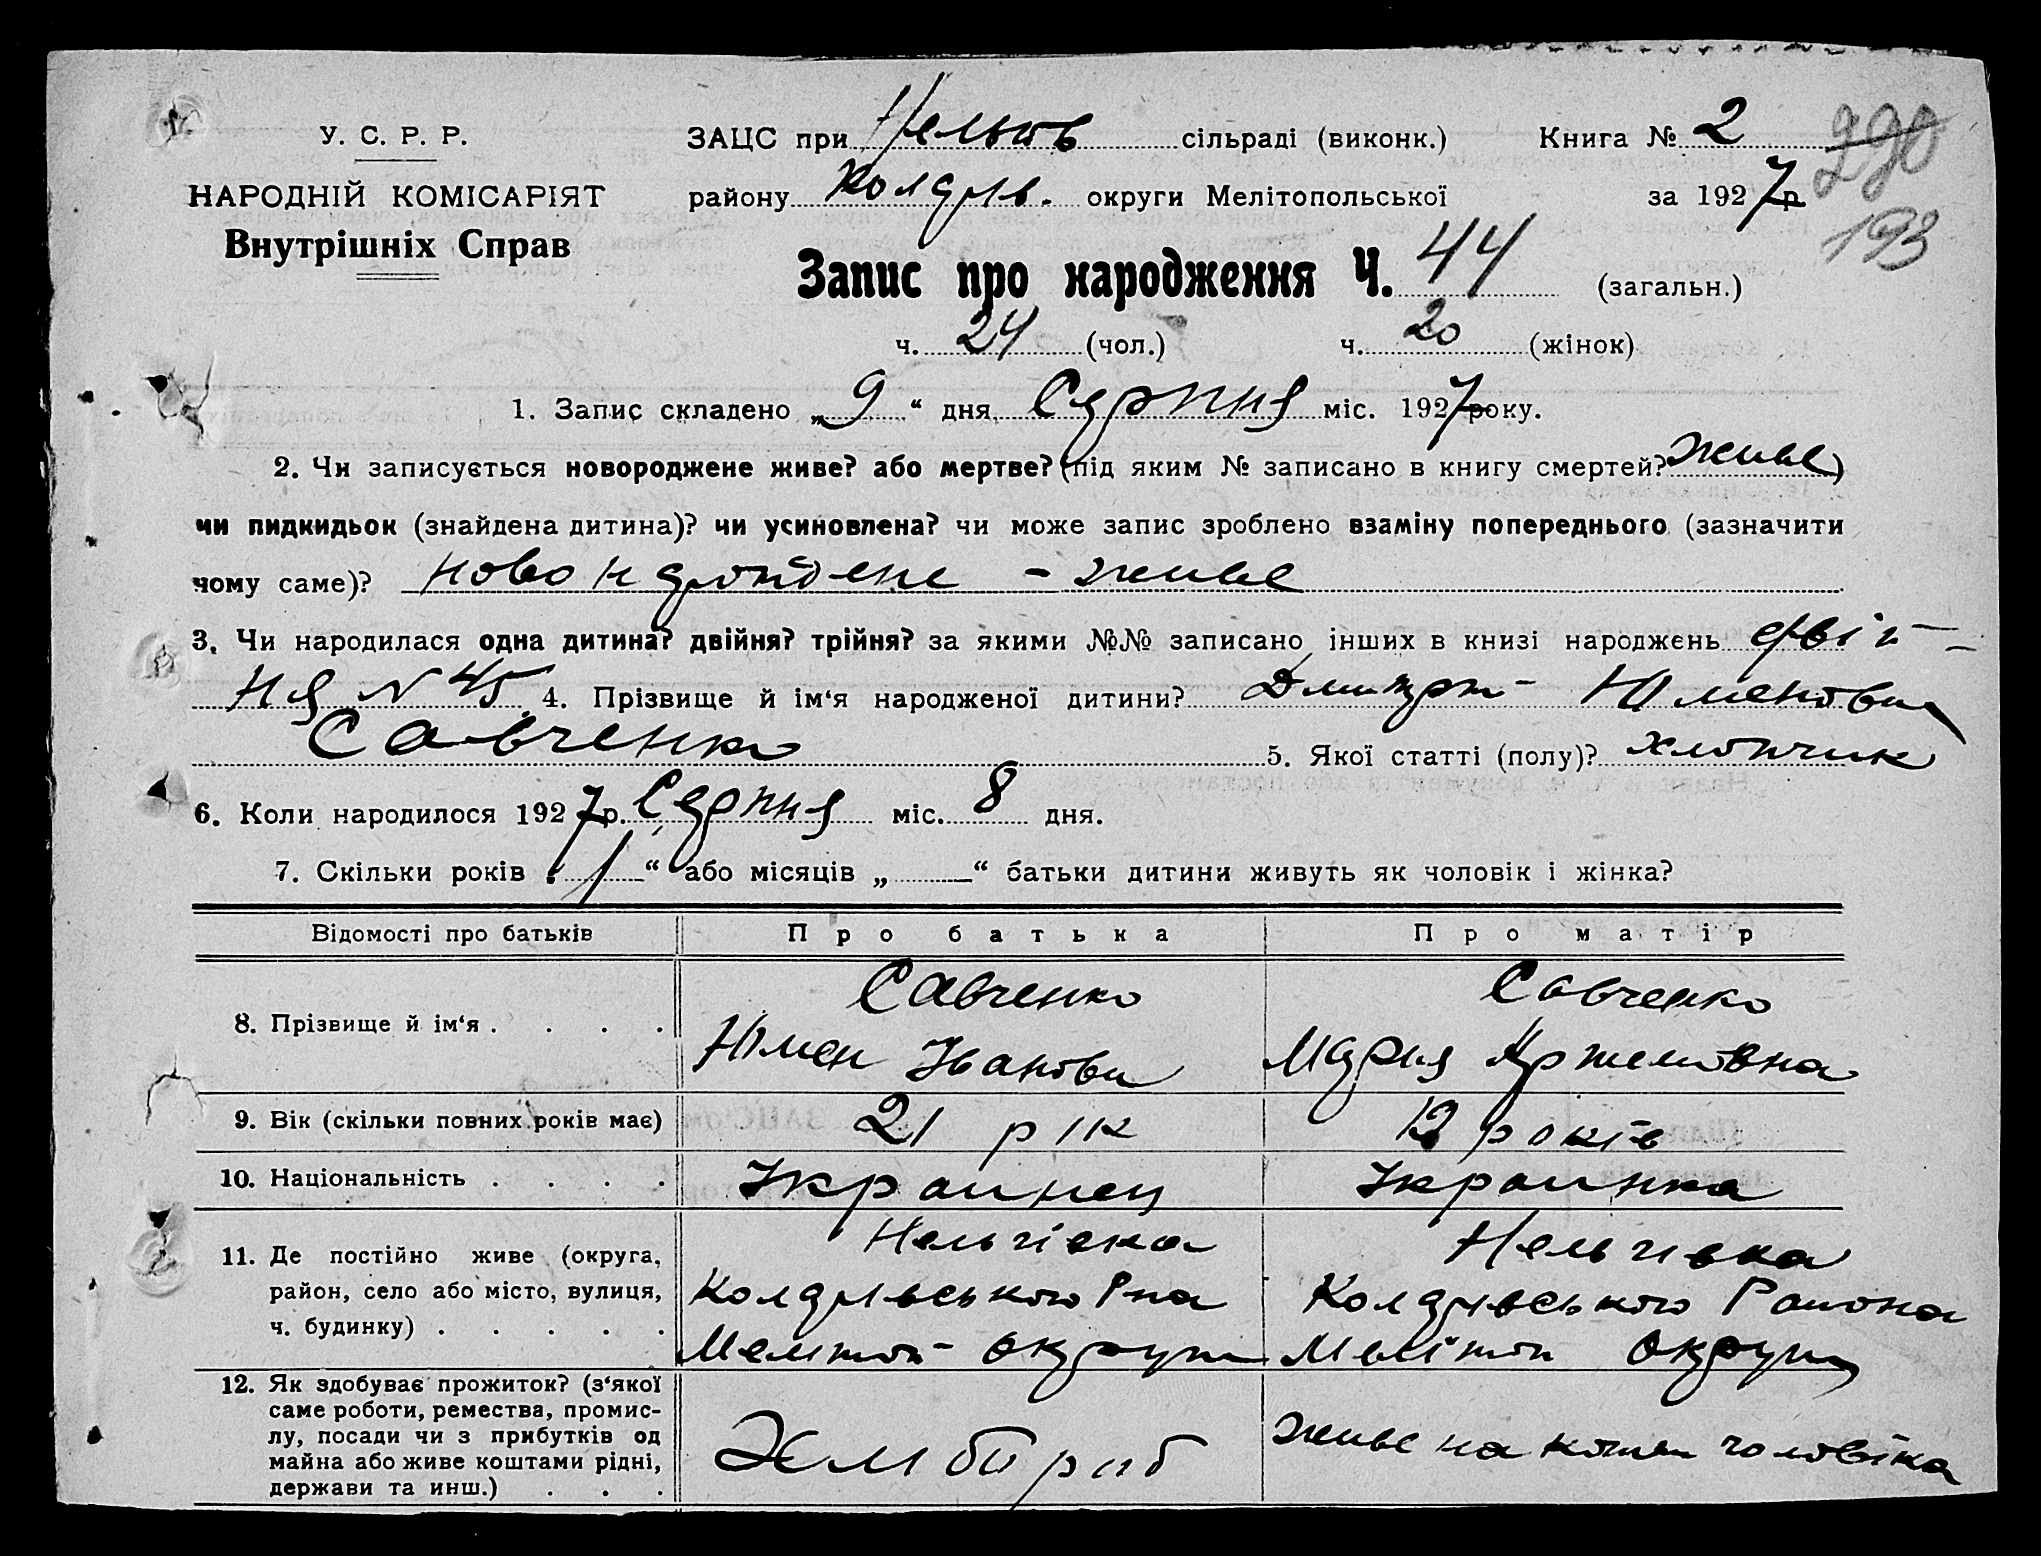 У. С. Р. Р.
НАРОДНІЙ КОМІСАРІЯТ
Внутрішніх Справ
ЗАЦС при Нельгів сільраді (виконк.) Книга № 2
району округи Мелітопольської за 1927 р
290
193
Запис про народження Ч. 44 (загальн.)
ч. 24 (чол.) ч. 20 (жінок)
1. Запис складено „ 9 “ дня Серпня міс. 1927 року.
2. Чи записується новороджене живе? або мертве? (під яким № записано в книгу смертей? живе)
чи пидкидьок (знайдена дитина)? чи усиновлена? чи може запис зроблено взаміну попереднього (зазначити
чому саме)? - живе
3. Чи народилася одна дитина? двійня? трійня? за якими №№ записано інших в книзі народжень двій-
ня N 45 4. Прізвище й ім‘я народженої дитини?
Савченко 5. Якої статті (полу)? хлопчик
6. Коли народилося 1927 р. Серпня міс. 8 дня.
7. Скільки років „ 1 “ або місяців „ “ батьки дитини живуть як чоловік і жінка?
Відомості про батьків Про батька Про матір
8. Прізвище й ім‘я . . . . Савченко Савченко
Юмен Іванови Мария
9. Вік (скільки повних років має) 21 рік років
10. Національність . . . . Украинец Украинка
11. Де постійно живе (округа, район, село або місто, вулиця, ч. будинку) . . . . . Нельгівка Нельгівка
Р-на Района
Меліт округи Меліт округи
12. Як здобуває прожиток? (з‘якої саме роботи, ремества, промислу, посади чи з прибутків од майна або живе коштами рідні, держави та инш.) . . . Хлібороб живе на кошти чоловіка